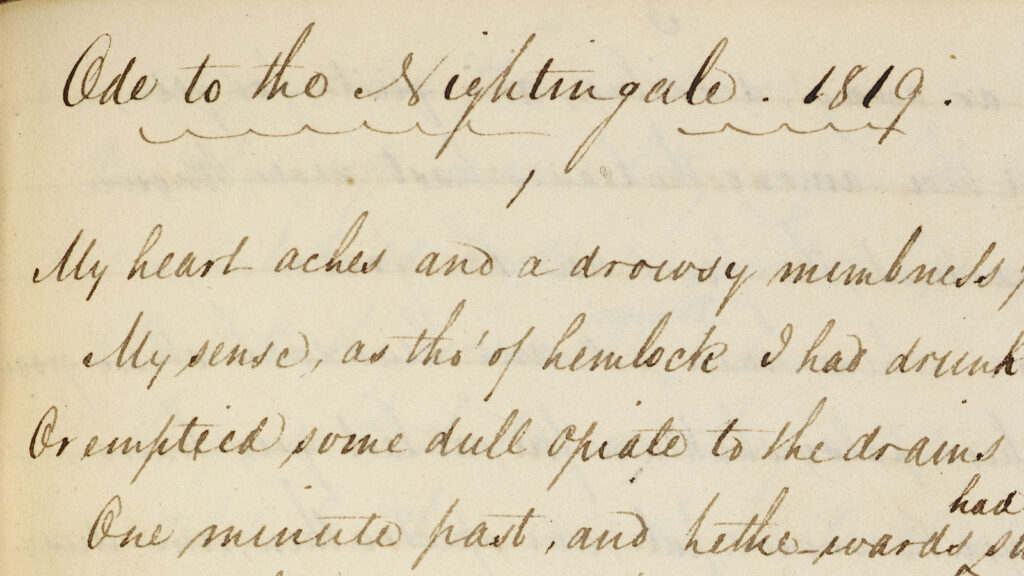 Ode to the Nightingale. 1819.
1
My heart aches and a drowsy numbness
My sense, as tho' of hemlock I had drunk
Or emptied some dull opiate to the drains
One minute past, and hethe-wards
had